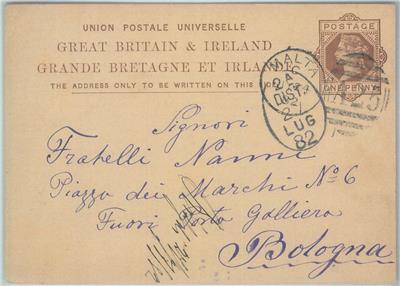 UNION POSTALE UNIVERSELLE
GREAT BRITAIN & IRELAND
GRANDE BRETAGNE ET IRLANDE
THE ADDRESS ONLY TO BE WRITTEN ON THIS
POSTAGE
ONE PENNY
MALTA
DIST
LUG
82
25
Signori
Fratelli Nanni
Piazza dei Marchi No 6
Fuori Porta Galliera
Bologna